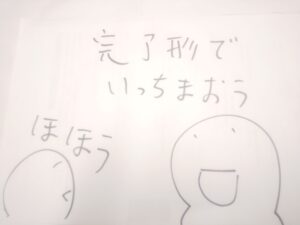 完了形で
いっちまおう
ほほう